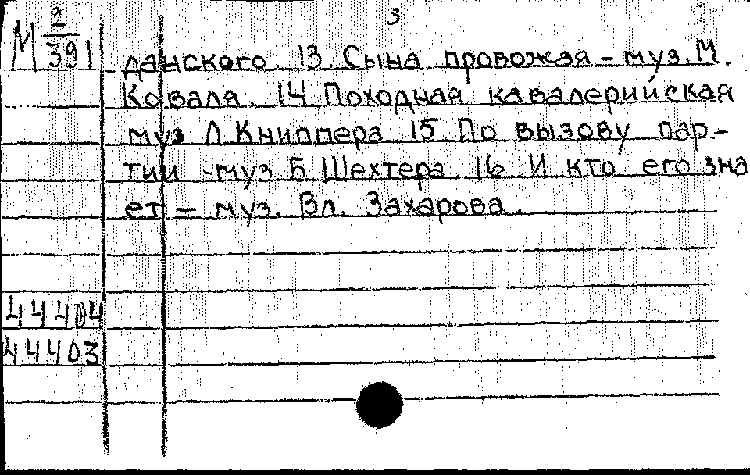 3
М 2/391
данского. 13. Сына провожая – муз. М.
Коваля. 14. Походная кавалерийская
муз Л. Книппера 15. По вызову пар-
тии – муз Б. Шехтера. 16 И кто его зна
ет – муз. Вл. Захарова.
44404
44403